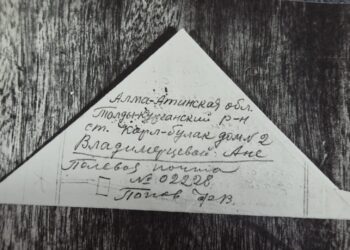 Алма-Атинская обл.
Талды-Курганский р-н
ст. Карл-булак дом N 2
Владимерцевой Ане
Полевая почта
№ 02228
Попов